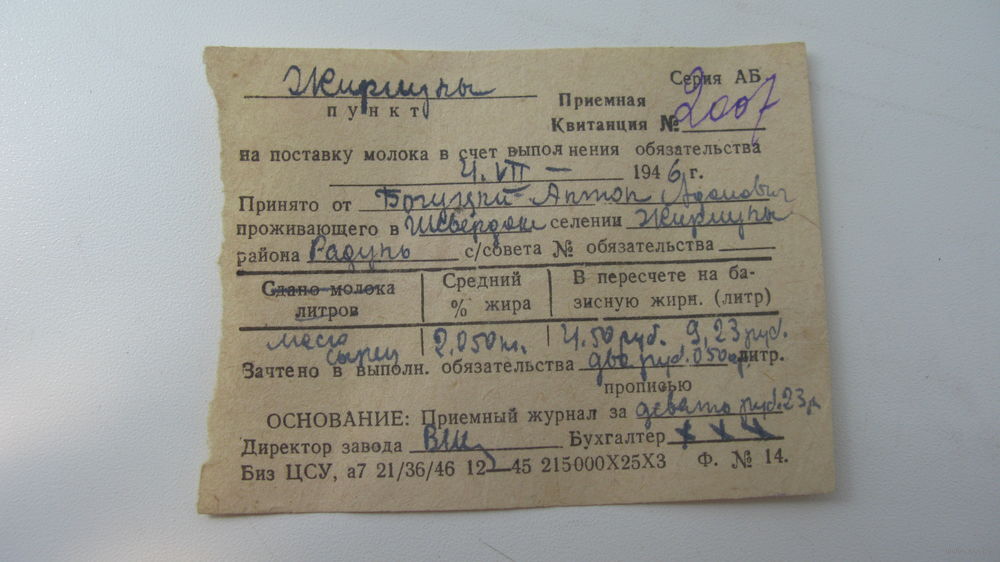 Жирмуны Серия АБ.
пункт Приемная
Квитанция № 2007
на поставку молока в счет выполнения обязательства
4. VII — 1946 г.
Принято от Богуцкий Антон Адамович
проживающего в селении Жирмуны
района Радунь с/совета № обязательства
Сдано молока литров
Средний % жира
В пересчете на базисную жирн. (литр)
масло сырец 2.050 4.50 руб. 9,23 руб.
Зачтено в выполн. обязательства два литр.
прописью
ОСНОВАНИЕ: Приемный журнал за девять руб. 23
Директор завода Бухгалтер х х х
Биз ЦСУ, а7 21/36/46 12—45 215000Х25Х3 Ф. № 14.